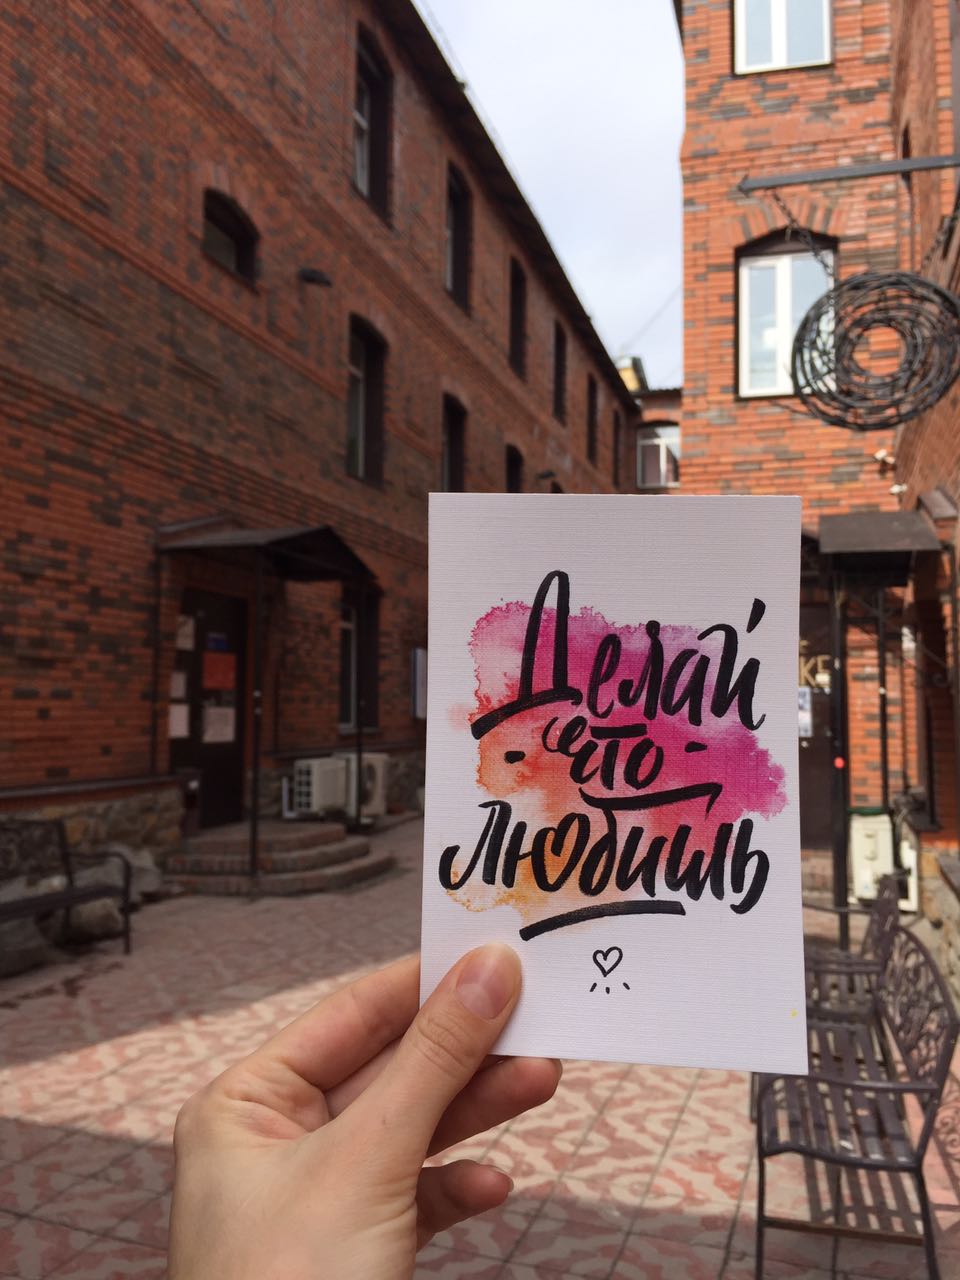 Делай
- что -
любишь